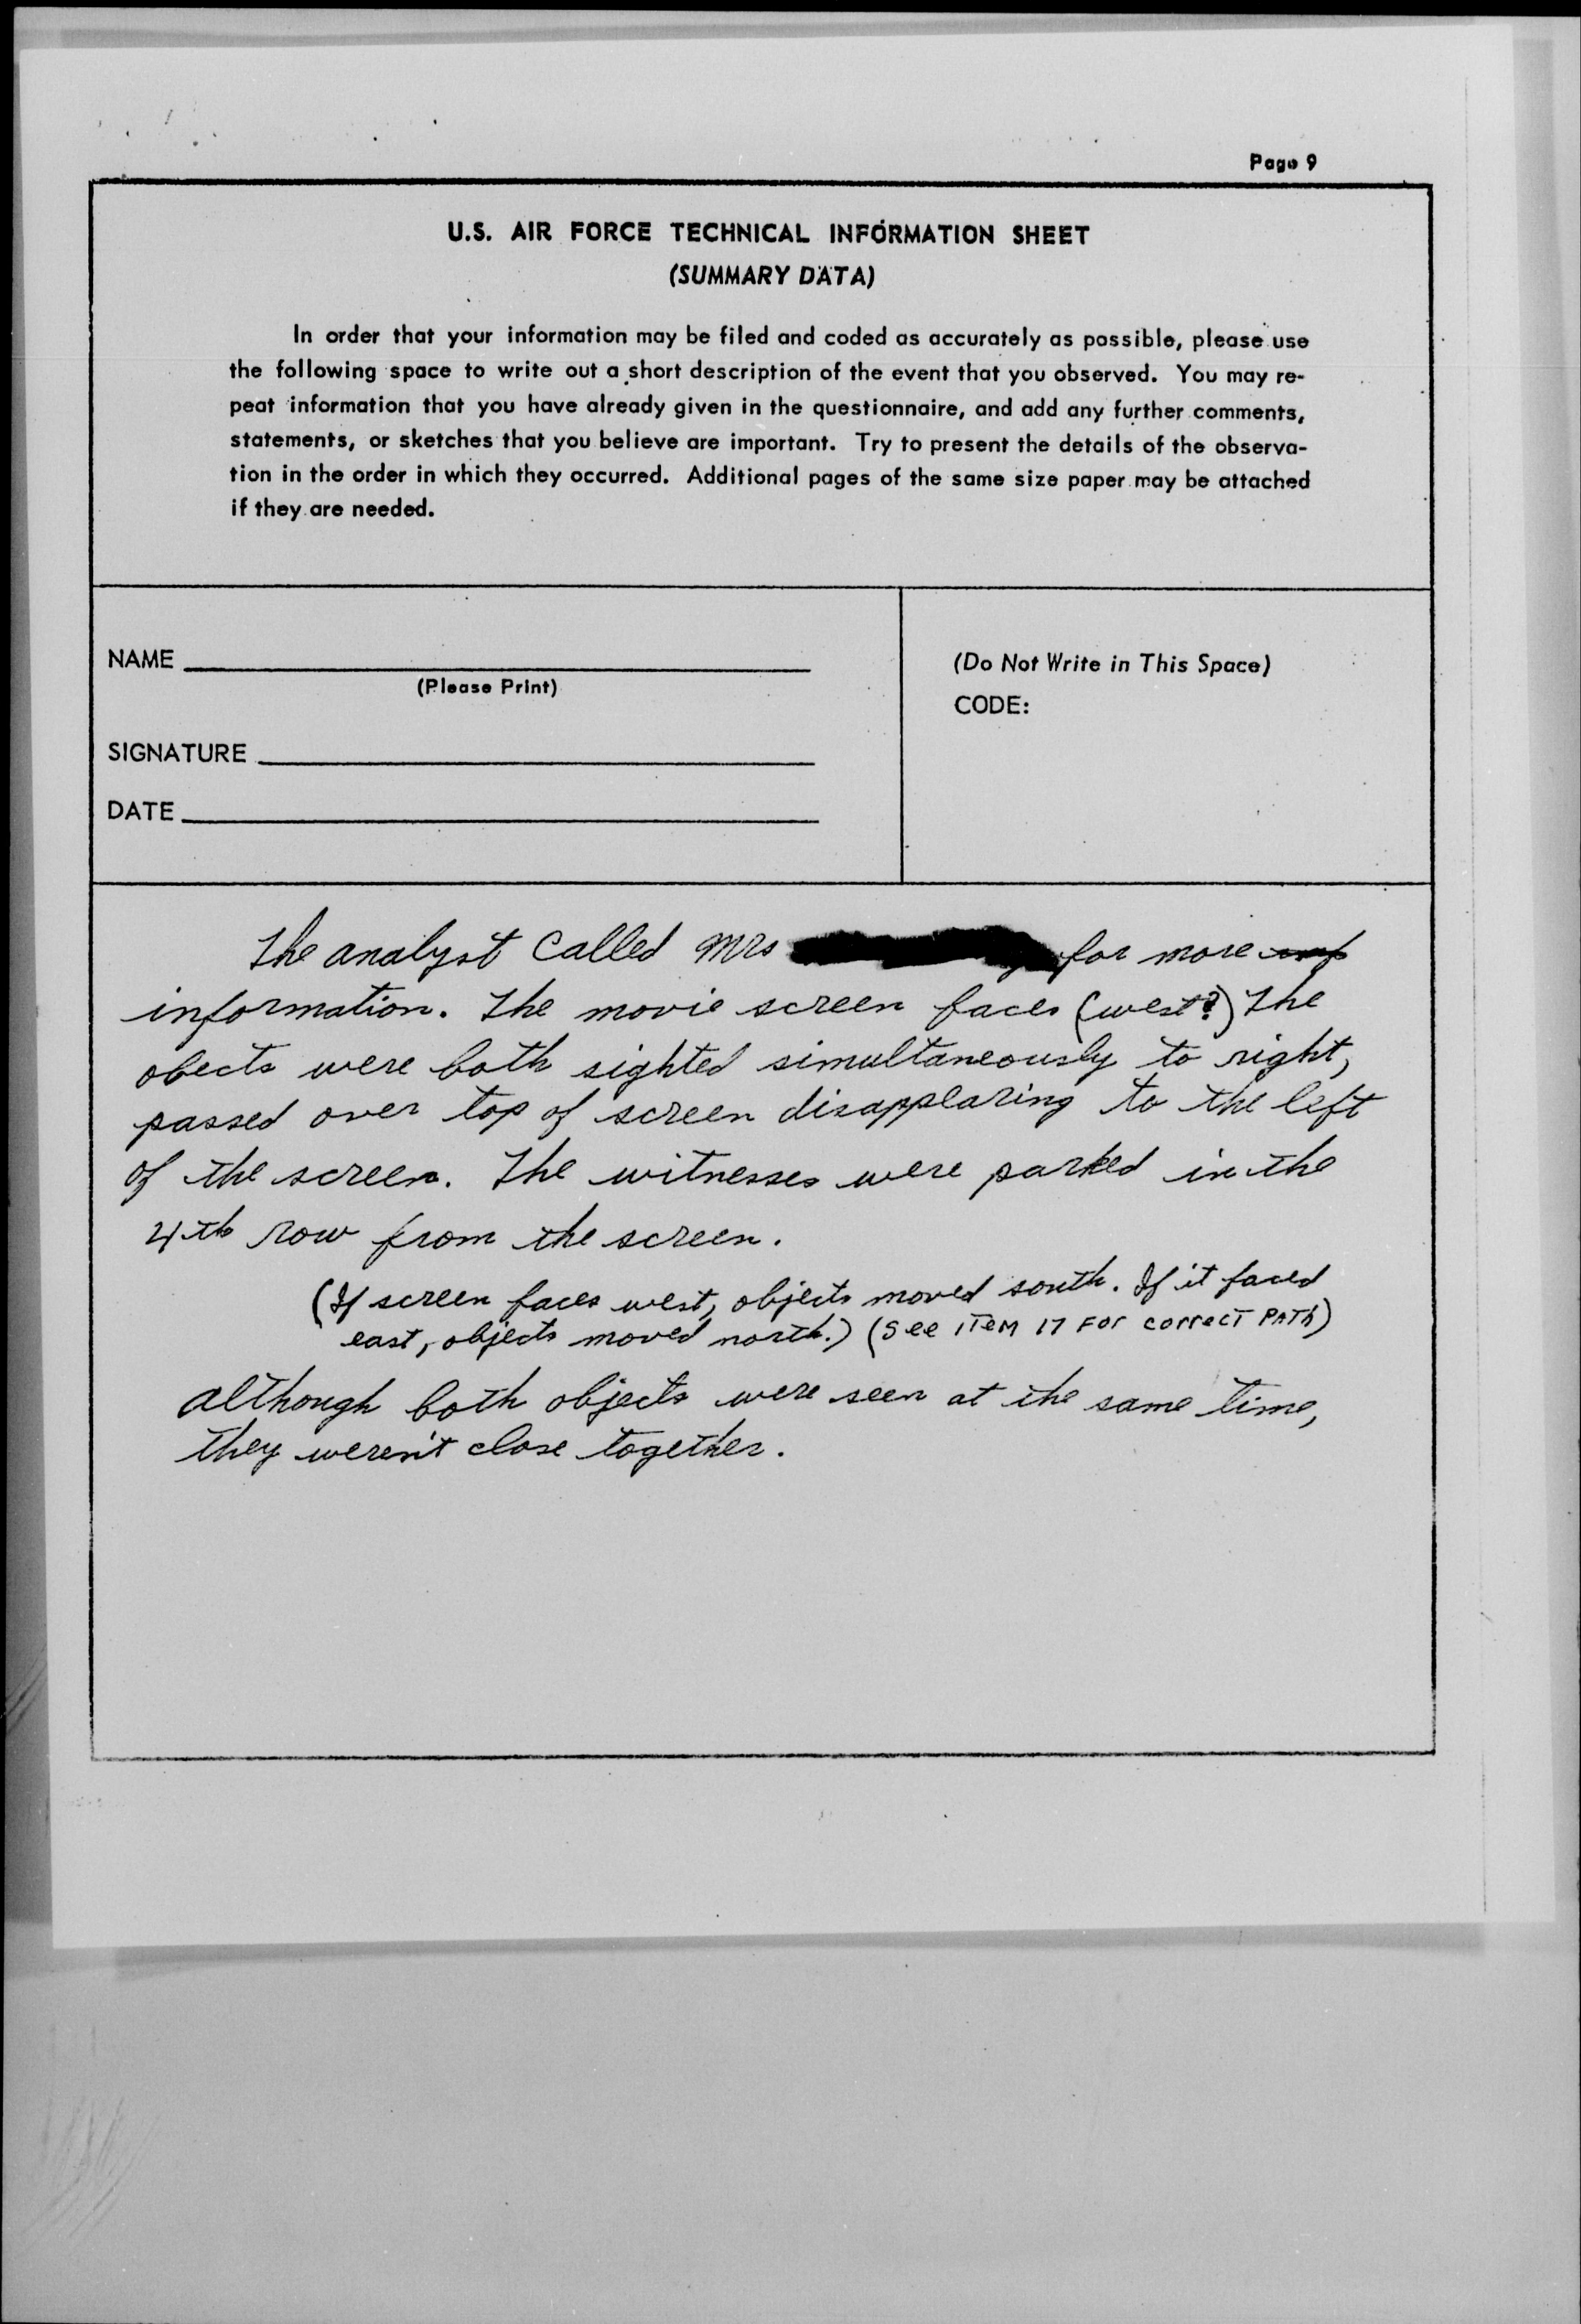 Page 9
U.S. AIR FORCE TECHNICAL INFORMATION SHEET
(SUMMARY DATA)
In order that your information may be filed and coded as accurately as possible, please use
the following space to write out a short description of the event that you observed. You may re-
peat information that you have already given in the questionnaire, and add any further comments,
statements, or sketches that you believe are important. Try to present the details of the observa-
tion in the order in which they occurred. Additional pages of the same size paper may be attached
if they are needed.
NAME
(Please Print)
SIGNATURE
DATE
(Do Not Write in This Space)
CODE:
The analyst Called Mrs for more
information. The movie screen faces (west?) The
obects were both sighted simultaneously to right,
passed over top of screen disappearing to the left
of the screen. The witnesses were parked in the
4th row from the screen.
(If screen faces west, objects moved south. If it faced
east, objects moved north.) (See ITEM 17 FOr correcT PATh)
Although both objects were seen at the same time,
they weren't close together.